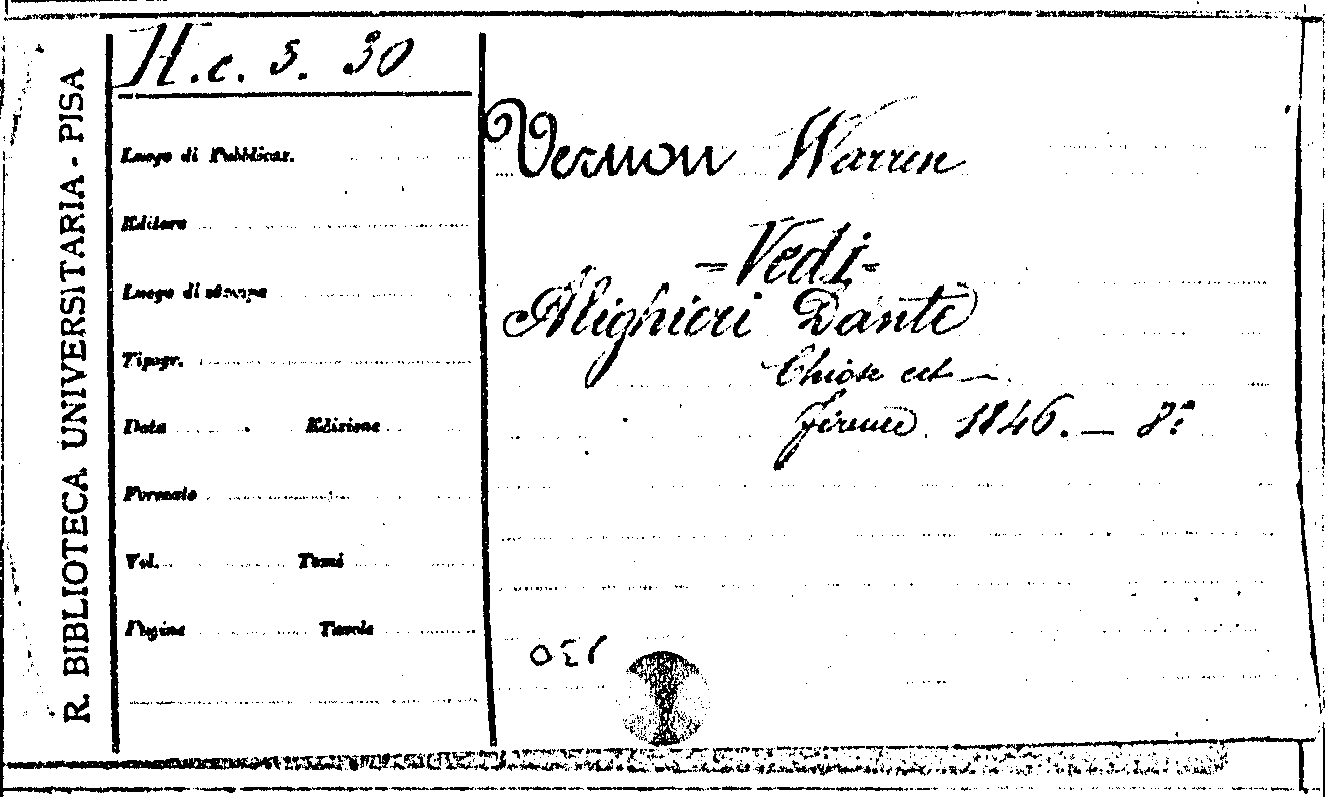 R. BIBLIOTECA UNIVERSITARIA - PISA
H.c. 5. 30
Luogo di Pubblicaz.
Editore
Luogo di stampa
Tipogr.
Data Edizione
Formato
Vol. Tomi
Pagine Tavole
Vernon Warren
=Vedi=
Alighieri Dante
Chiose ect —
Firenze 1846. — 8º